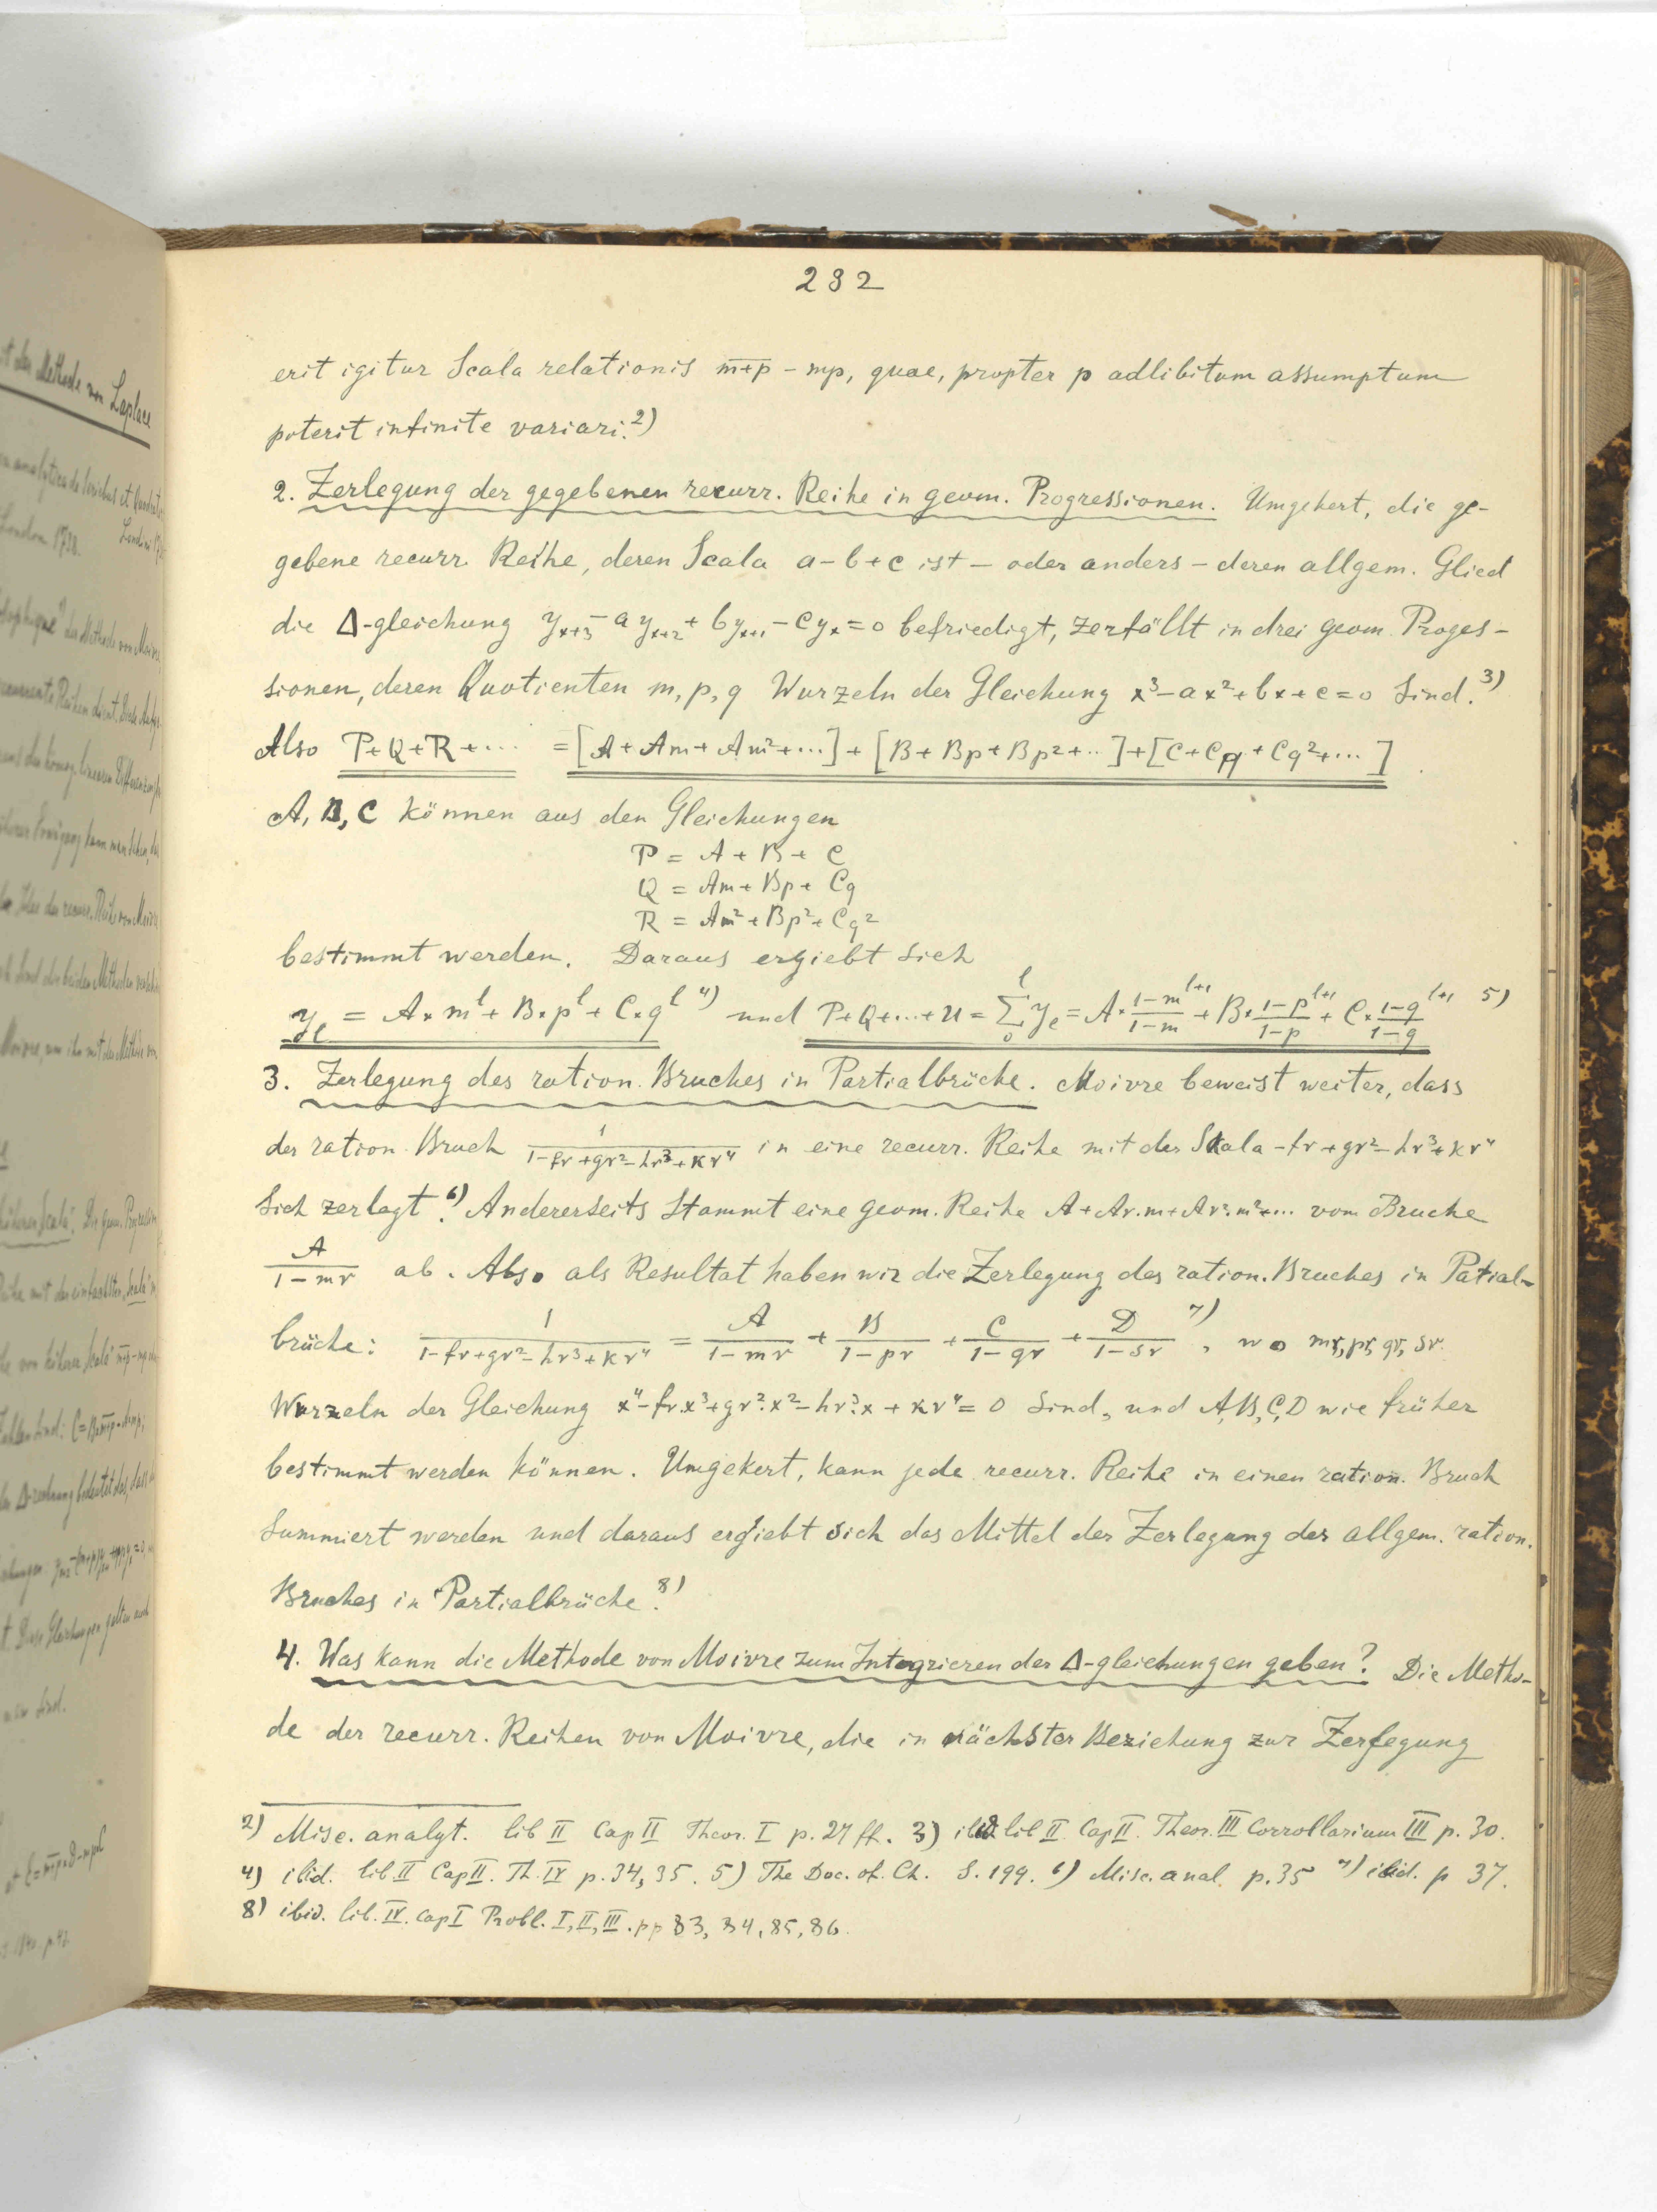 232
erit igitur Scala relationis m+p - mp, quae, propter p adlibitum assumptum
poterit infinite variari.2)
2. Zerlegung der gegebenen recurr. Reihe in geom. Progressionen. Umgekert, die ge-
gebene recurr. Reihe, deren Scala a-b+c ist - oder anders - deren allgem. Glied
die Δ-gleichung yₓ₊₃ - ayₓ₊₂ + byₓ₊₁ - cyₓ = 0 befriedigt, zerfällt in drei geom. Proges-
sionen, deren Quotienten m, p, q Wurzeln der Gleichung x³-ax²+bx+c=0 sind.3)
Also P+Q+R+... = [A+Am+Am²+...]+[B+Bp+Bp²+..]+[C+Cq+Cq²+...]
A, B, C können aus den Gleichungen
P = A + B + C
Q = Am + Bp + Cq
R = Am² + Bp² + Cq²
bestimmt werden. Daraus ergiebt sich
y_l = A×m^l + B×p^l + C×q^l 4) und P+Q+...+U = Σ_0^l y_l = A×(1-m^(l+1))/(1-m) + B×(1-p^(l+1))/(1-p) + C×(1-q^(l+1))/(1-q) 5)
3. Zerlegung des ration. Bruches in Partialbrüche. Moivre beweist weiter, dass
der ration. Bruch 1/(1-fr+gr²-hr³+kr⁴) in eine recurr. Reihe mit der Skala -fr+gr²-hr³+kr⁴
sich zerlegt.6) Andererseits stammt eine geom. Reihe A+Ar.m+Ar².m²+... vom Bruche
A/(1-mr) ab. Also als Resultat haben wir die Zerlegung des ration. Bruches in Patial-
brüche: 1/(1-fr+gr²-hr³+kr⁴) = A/(1-mr) + B/(1-pr) + C/(1-qr) + D/(1-sr) 7), wo mr, pr, qr, sr.
Wurzeln der Gleichung x⁴-fr.x³+gr².x²-hr³.x+kr⁴=0 sind, und A,B,C,D wie früher
bestimmt werden können. Umgekert, kann jede recurr. Reihe in einen ration. Bruch
summiert werden und daraus ergiebt sich das Mittel der Zerlegung des allgem. ration.
Bruches in Partialbrüche.8)
4. Was kann die Methode von Moivre zum Integrieren der Δ-gleichungen geben? Die Metho-
de der recurr. Reihen von Moivre, die in nächster Beziehung zur Zerlegung
2) Misc. analyt. lib II Cap II Theor. I p. 27 ff. 3) ibid lib II Cap II. Theor. III Corrollarium III p. 30.
4) ibid. lib II Cap II. Th. IV p. 34, 35. 5) The Doc. of. Ch. S. 199. 6) Misc. anal. p. 35 7) ibid. p 37.
8) ibid. lib. IV. Cap I Probl. I, II, III. pp 83, 84, 85, 86.